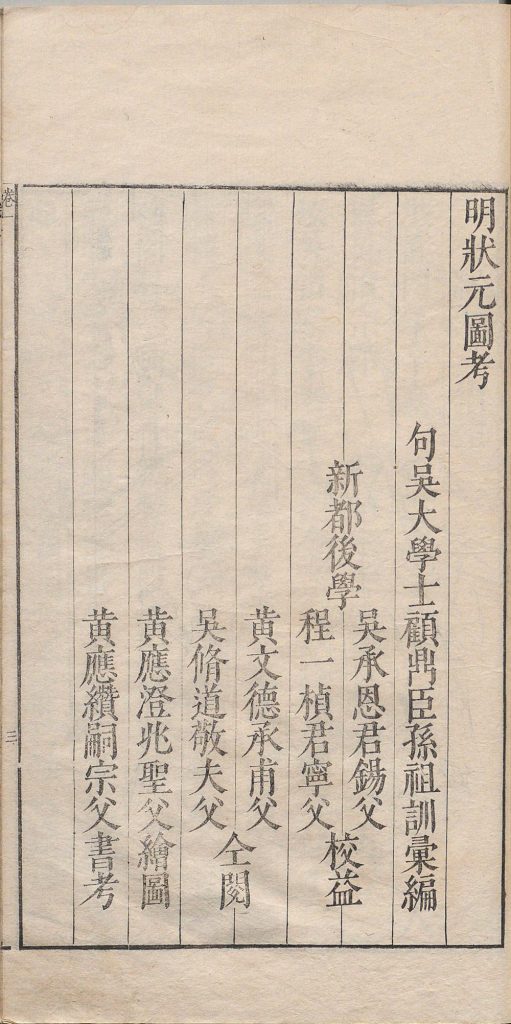 明狀元圖考
句吳大學士顧鼎臣孫祖訓彙編
吳承恩君錫父
新都後學
校益
程一楨君寧父
黃文德承甫父
仝閱
吳脩道敬夫父
黃應澄兆聖父繪圖
黃應纘嗣宗父書考
卷一
三